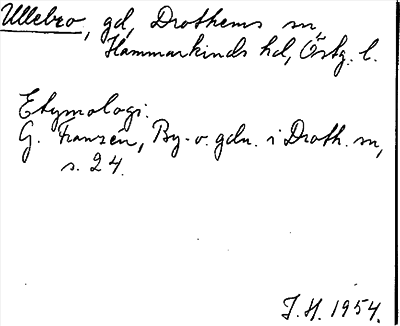 Ullebro, gd, Drothems sn,
Hammarkinds hd, Östg. l.
Etymologi.
G. Franzén, By- o. gdn. i Droth. sn,
s. 24.
J.H. 1954.